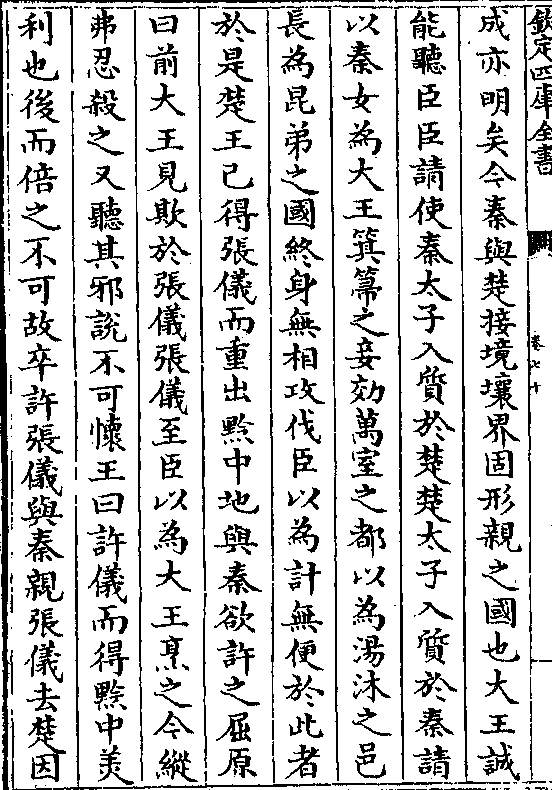 欽定四庫全書
卷七十
成亦明矣今秦與楚接境壤界固形親之國也大王誠
能聽臣臣請使秦太子入質於楚楚太子入質於秦請
以秦女為大王箕箒之妾効萬室之都以為湯沐之邑
長為昆弟之國終身無相攻伐臣以為計無便於此者
於是楚王已得張儀而重出黔中地與秦欲許之屈原
曰前大王見欺於張儀張儀至臣以為大王烹之今縱
弗忍殺之又聽其邪說不可懷王曰許儀而得黔中美
利也後而倍之不可故卒許張儀與秦親張儀去楚因